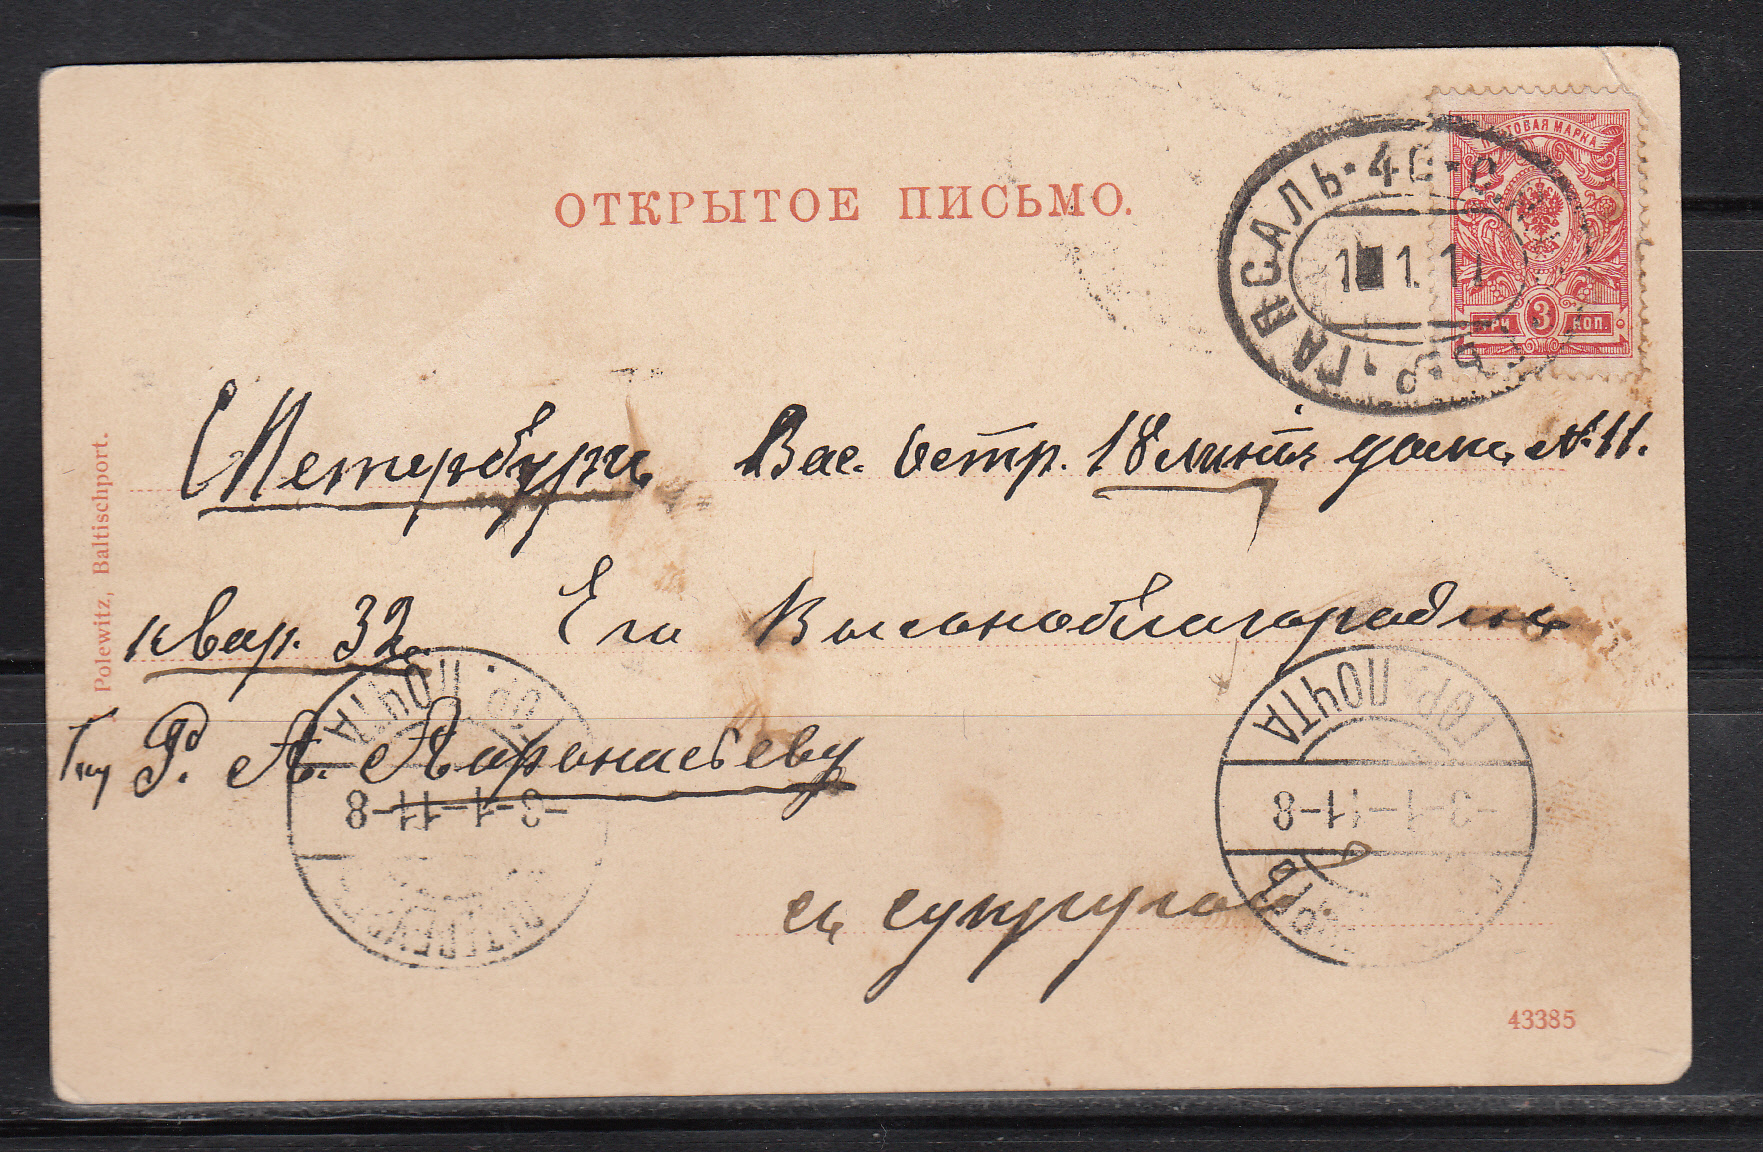 ОТКРЫТОЕ ПИСЬМО.
ПОЧТОВАЯ МАРКА
3
ТРИ КОП.
ГАПСАЛЬ
1 1. 1
С Петербургъ Вас. Остр. 18 линія домъ № 11.
квар. 32. Его Высокоблагородію
А.
съ супругой.
ГОР. ПОЧТА
8-11-1-3
ГОР. ПОЧТА
8-11-1-3
Polewitz, Baltischport.
43385